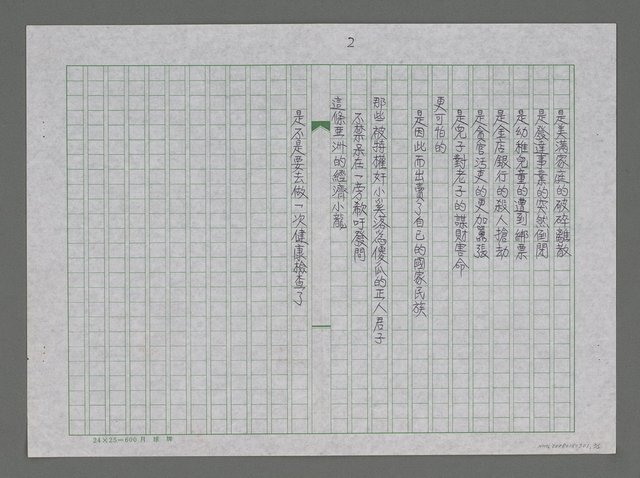 2
是美滿家庭的破碎離散
是發達事業的突然倒閉
是幼稚兒童的遭到綁票
是金店銀行的殺人搶劫
是貪官汚吏的更加囂張
是兒子對老子的謀財害命
更可怕的
是因此而出賣了自己的國家民族
那些被特權奸小奚落為傻瓜的正人君子
不禁呆在一旁歎吁發問
這條亞洲的經濟小龍
是不是要去做一次健康檢查了
24×25=600 月球牌